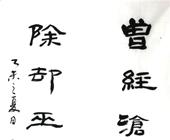 曾經滄
除却巫
乙未之夏日